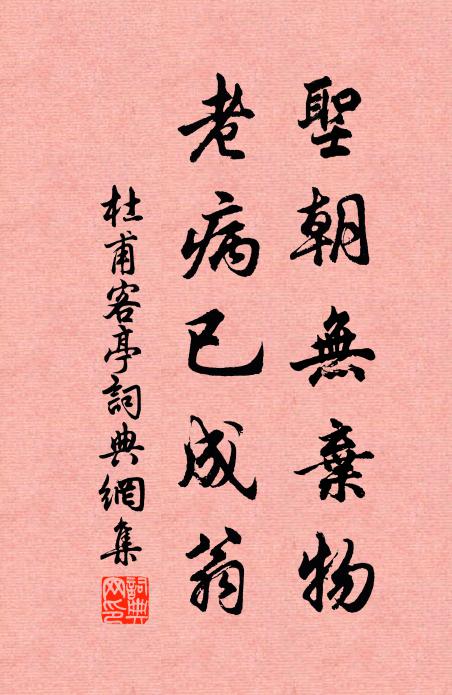 聖朝無棄物
老病已成翁
杜甫客亭詞典網集
詞典網印